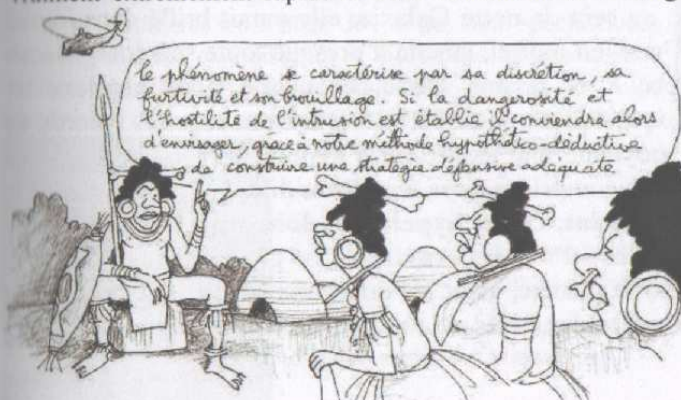 le phénomène se caractérise par sa discrétion, sa
furtivité et son brouillage. Si la dangerosité et
l'hostilité de l'intrusion est établie il conviendra alors
d'envisager, grâce à notre méthode hypothético-déductive
de construire une stratégie défensive adéquate